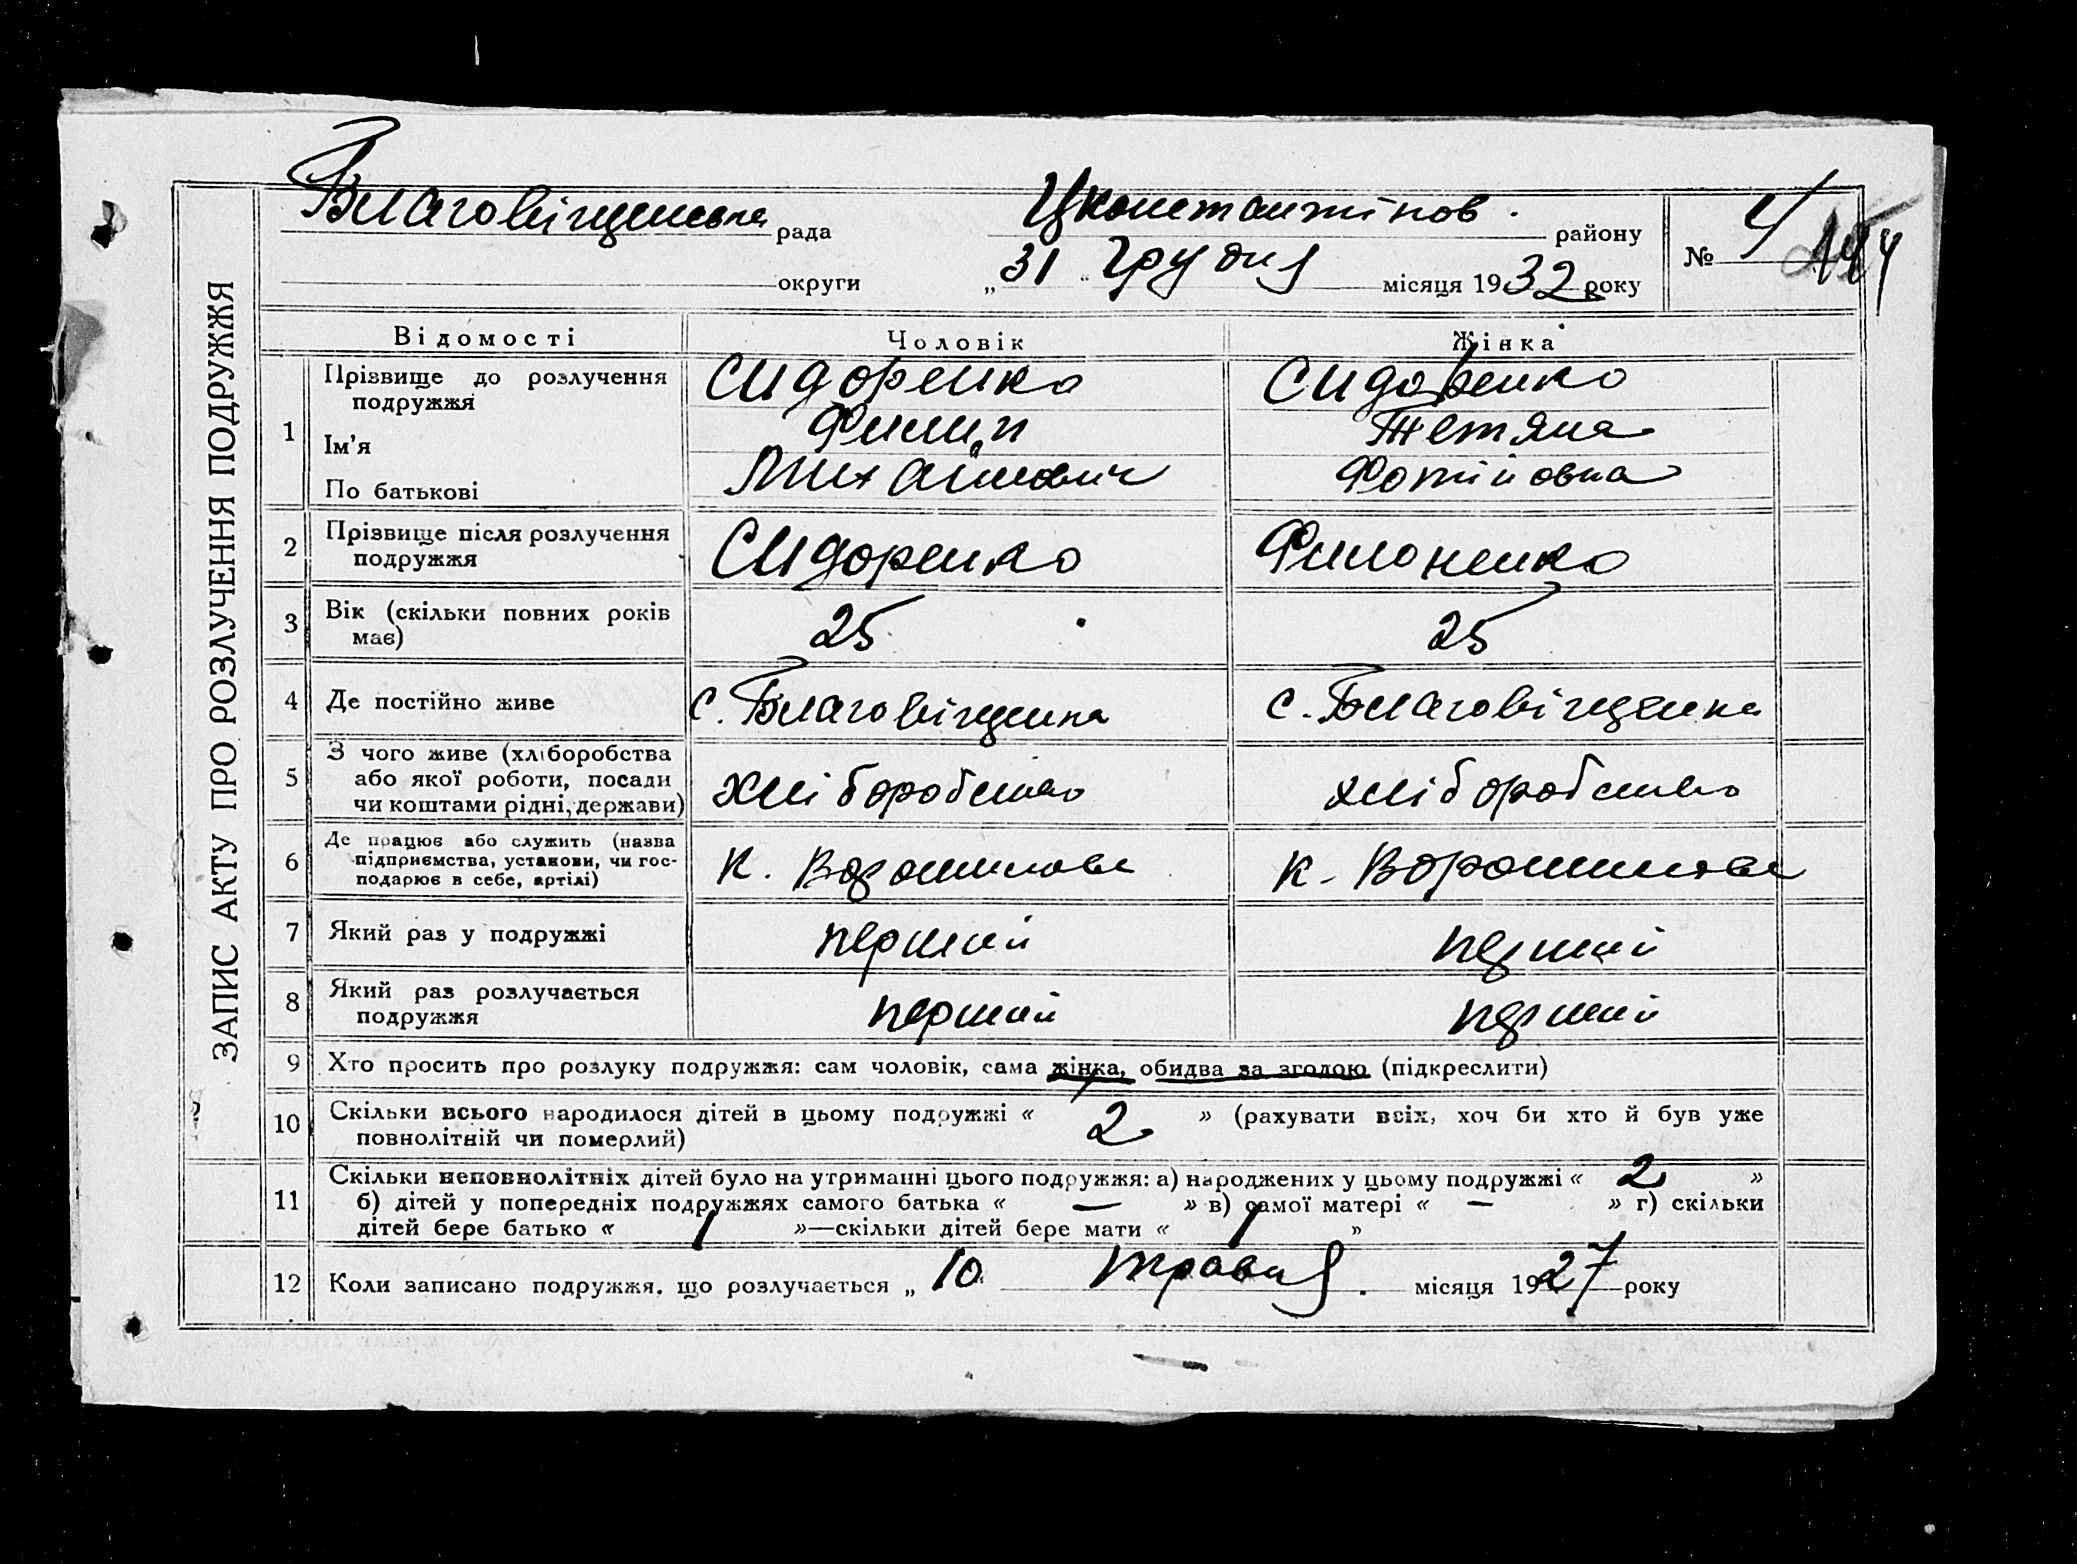 ЗАПИС АКТУ ПРО РОЗЛУЧЕННЯ ПОДРУЖЖЯ
Благовіщенська рада Цконстантінов. району № 4 144
округи „31“ Грудня місяця 1932 року
Відомості Чоловік Жінка
1 Прізвище до розлучення подружжя Сидоренко Сидоренко
Ім'я Филип Тетяна
По батькові Михайлович Фотійовна
2 Прізвище після розлучення подружжя Сидоренко Филоненко
3 Вік (скільки повних років має) 25 25
4 Де постійно живе с. Благовіщенка с. Благовіщенка
5 З чого живе (хліборобства або якої роботи, посади чи коштами рідні, держави) хліборобство хліборобство
6 Де працює або служить (назва підприємства, установи, чи господарює в себе, артілі) к. Ворошилова к. Ворошилова
7 Який раз у подружжі перший перший
8 Який раз розлучається подружжя перший перший
9 Хто просить про розлуку подружжя: сам чоловік, сама жінка, обидва за згодою (підкреслити)
10 Скільки всього народилося дітей в цьому подружжі « 2 » (рахувати всіх, хоч би хто й був уже
повнолітній чи померлий)
11 Скільки неповнолітніх дітей було на утриманні цього подружжя: а) народжених у цьому подружжі « 2 »
б) дітей у попередніх подружжях самого батька « — » в) самої матері « — » г) скільки
дітей бере батько « 1 »—скільки дітей бере мати « 1 »
12 Коли записано подружжя, що розлучається „ 10 Травня місяця 1927 року